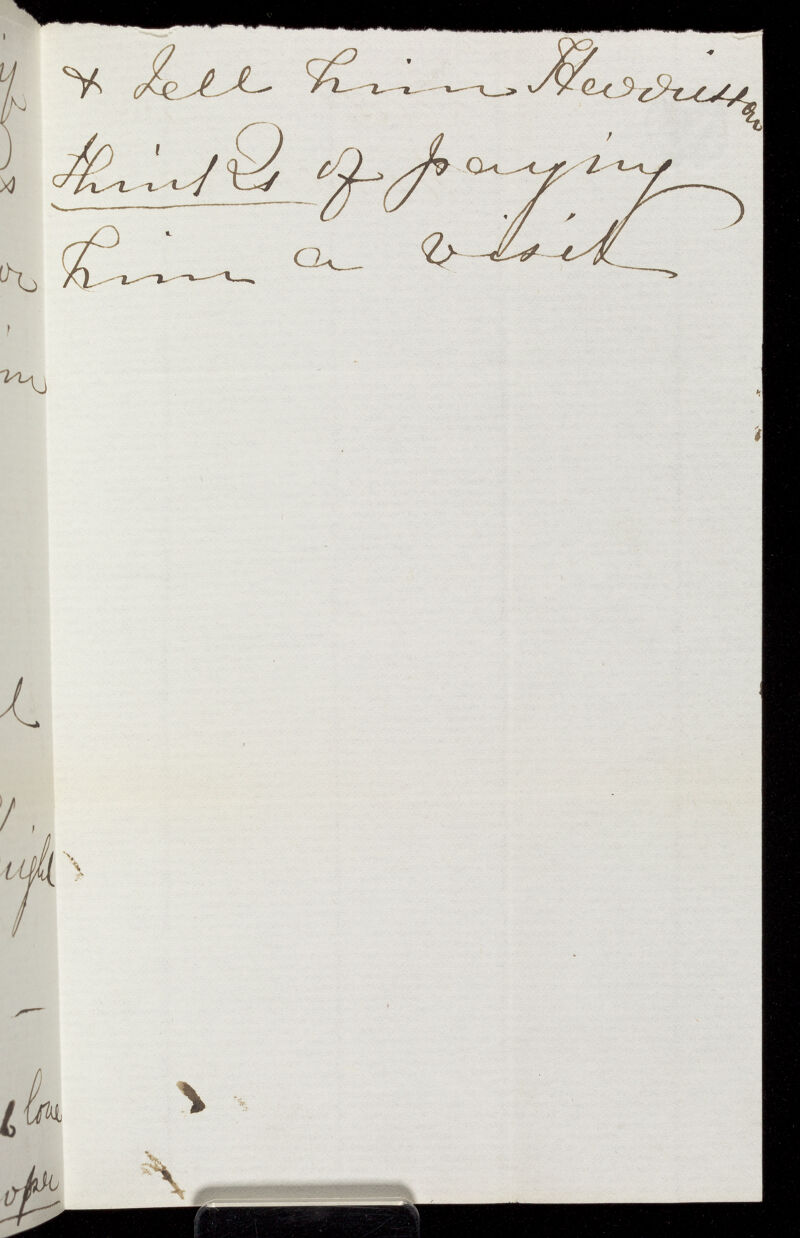 & tell him
thinks of paying
him a visit
love